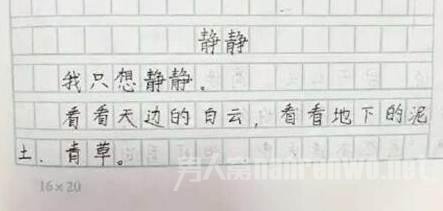 静静
我只想静静。
看看天边的白云，看看地下的泥
土．青草。
16×20
男人窝nanrenwo.net